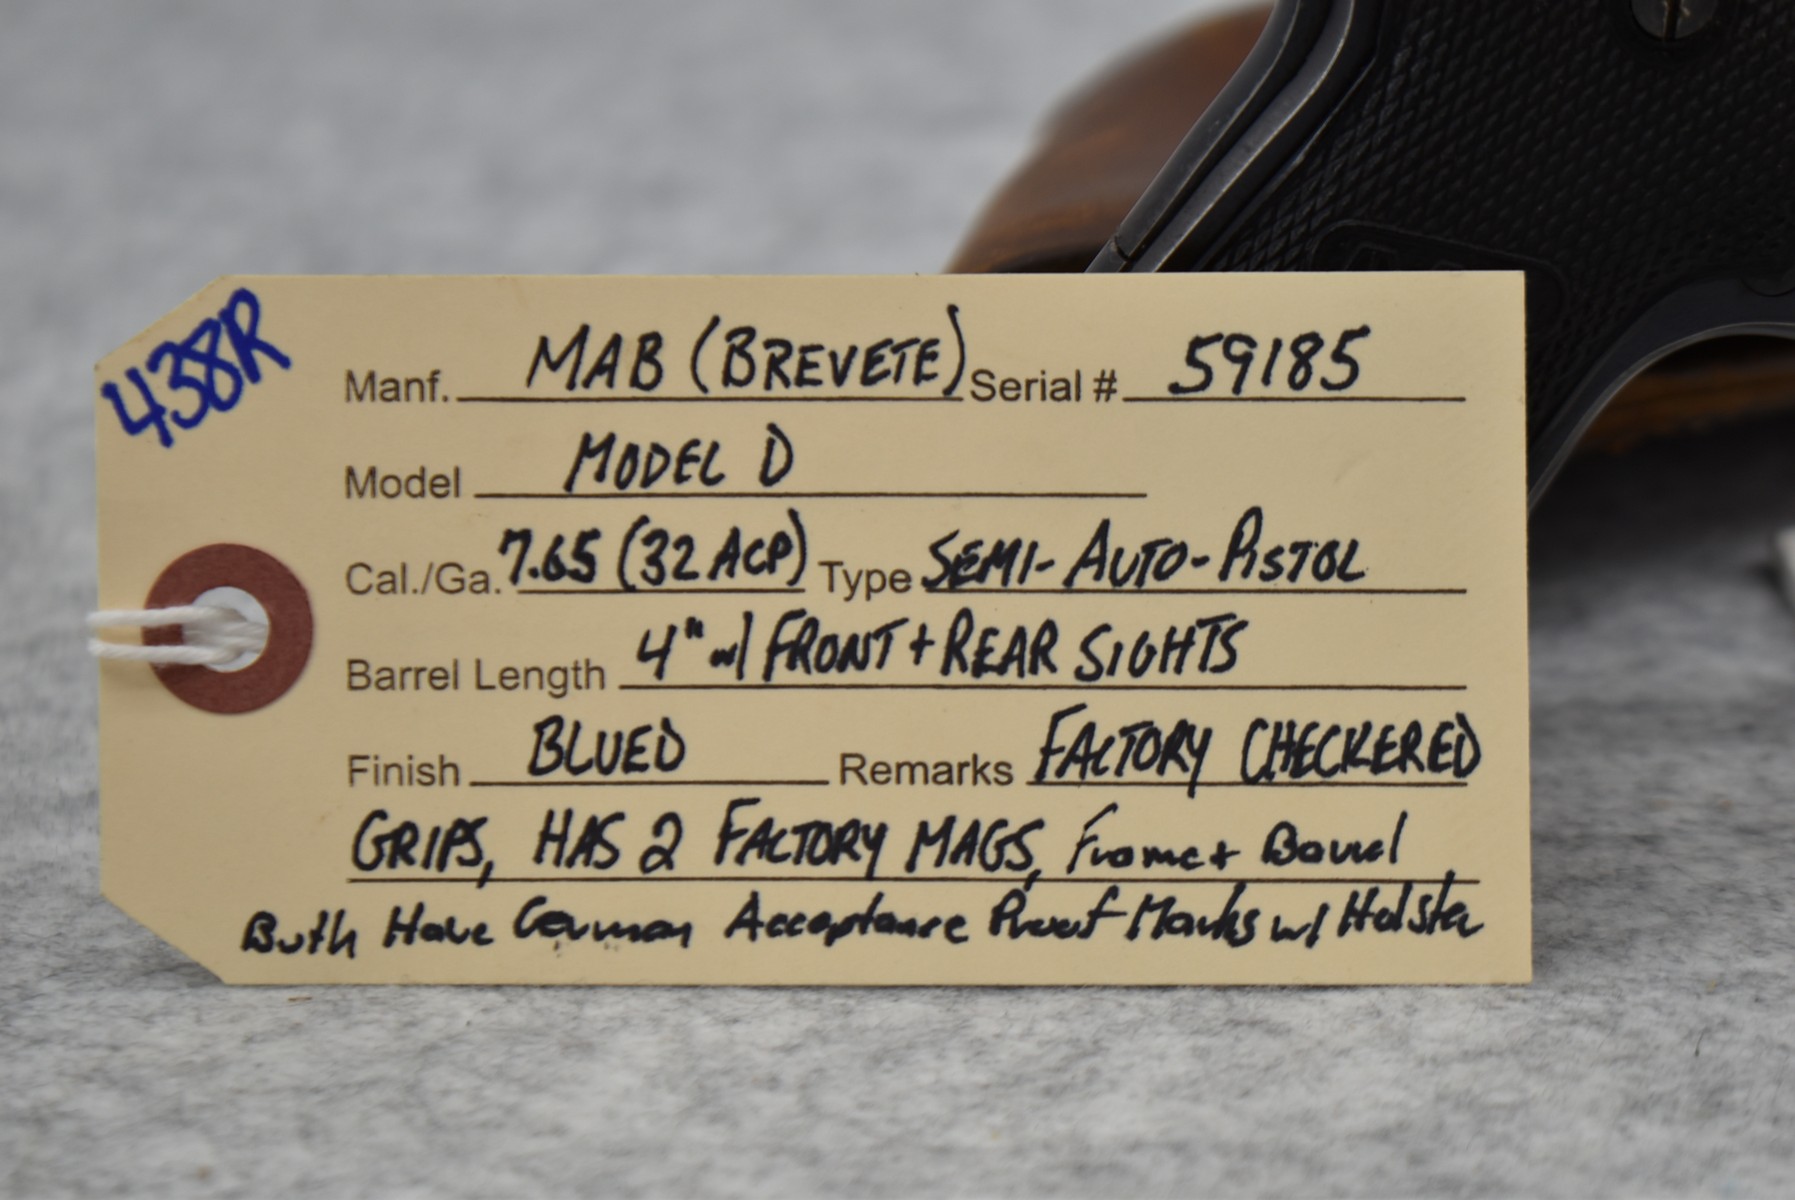 438R
Manf. MAB (BREVETE) Serial # 59185
Model MODEL D
Cal./Ga. 7.65 (32 ACP) Type SEMI-AUTO-PISTOL
Barrel Length 4" w/ FRONT + REAR SIGHTS
Finish BLUED Remarks FACTORY CHECKERED
GRIPS, HAS 2 FACTORY MAGS, Frame + Barrel
Both Have German Acceptance Proof Marks w/ Holster